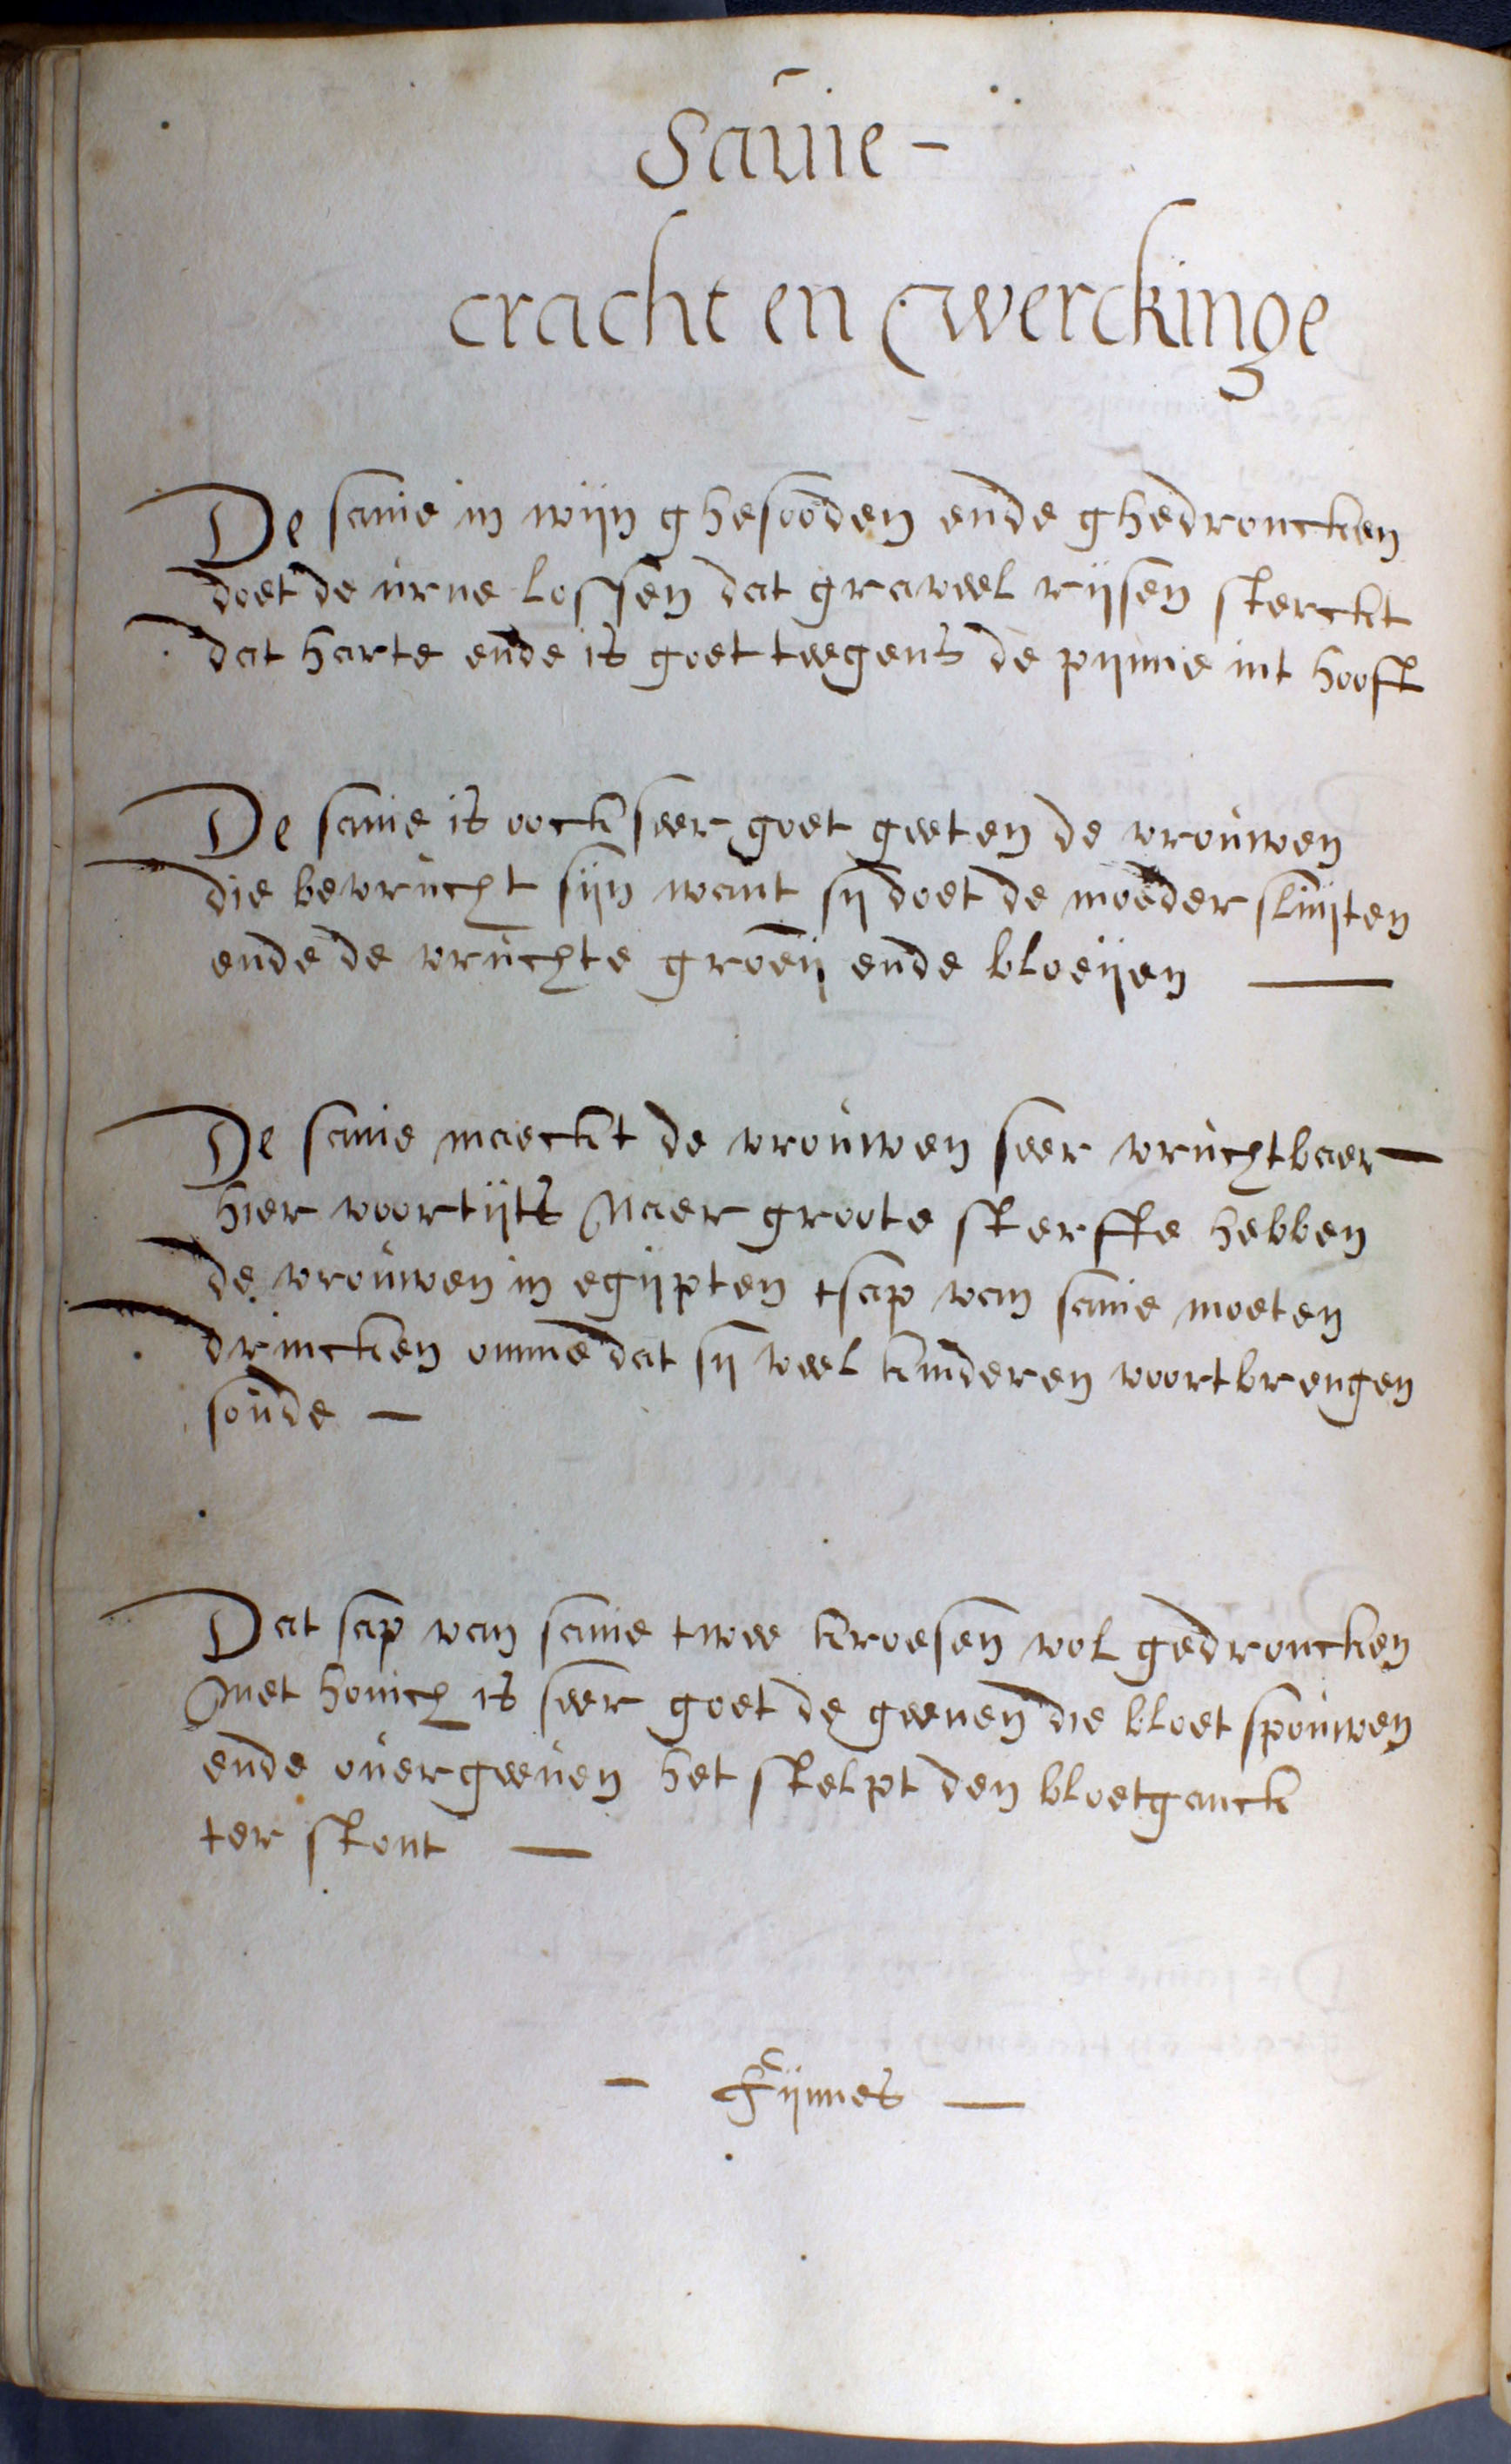 Sauie -
cracht en werckinge
De sauie in wijn ghesooden ende ghedroncken
doet de urne lossen dat graveel rijsen sterckt
dat harte ende is goet teegens de pijnnie int hooft
De sauie is oock seer goet geeten de vrouwen
die bevrucht sijn want sij doet de moeder sluijten
ende de vruchte groeij ende bloeijen —
De sauie maeckt de vrouwen seer vruchtbaer —
hier voortijts Naer groote sterffte hebben
de vrouwen in egijpten tsap van sauie moeten
drincken omme dat sij veel kinderen voortbrengen
soude —
Dat sap van sauie twee kroesen vol gedroncken
Met honich is seer goet de geenen die bloet spouwen
ende ouergeeuen het stelpt den bloetganck
ter stont —
- Fijnnes —